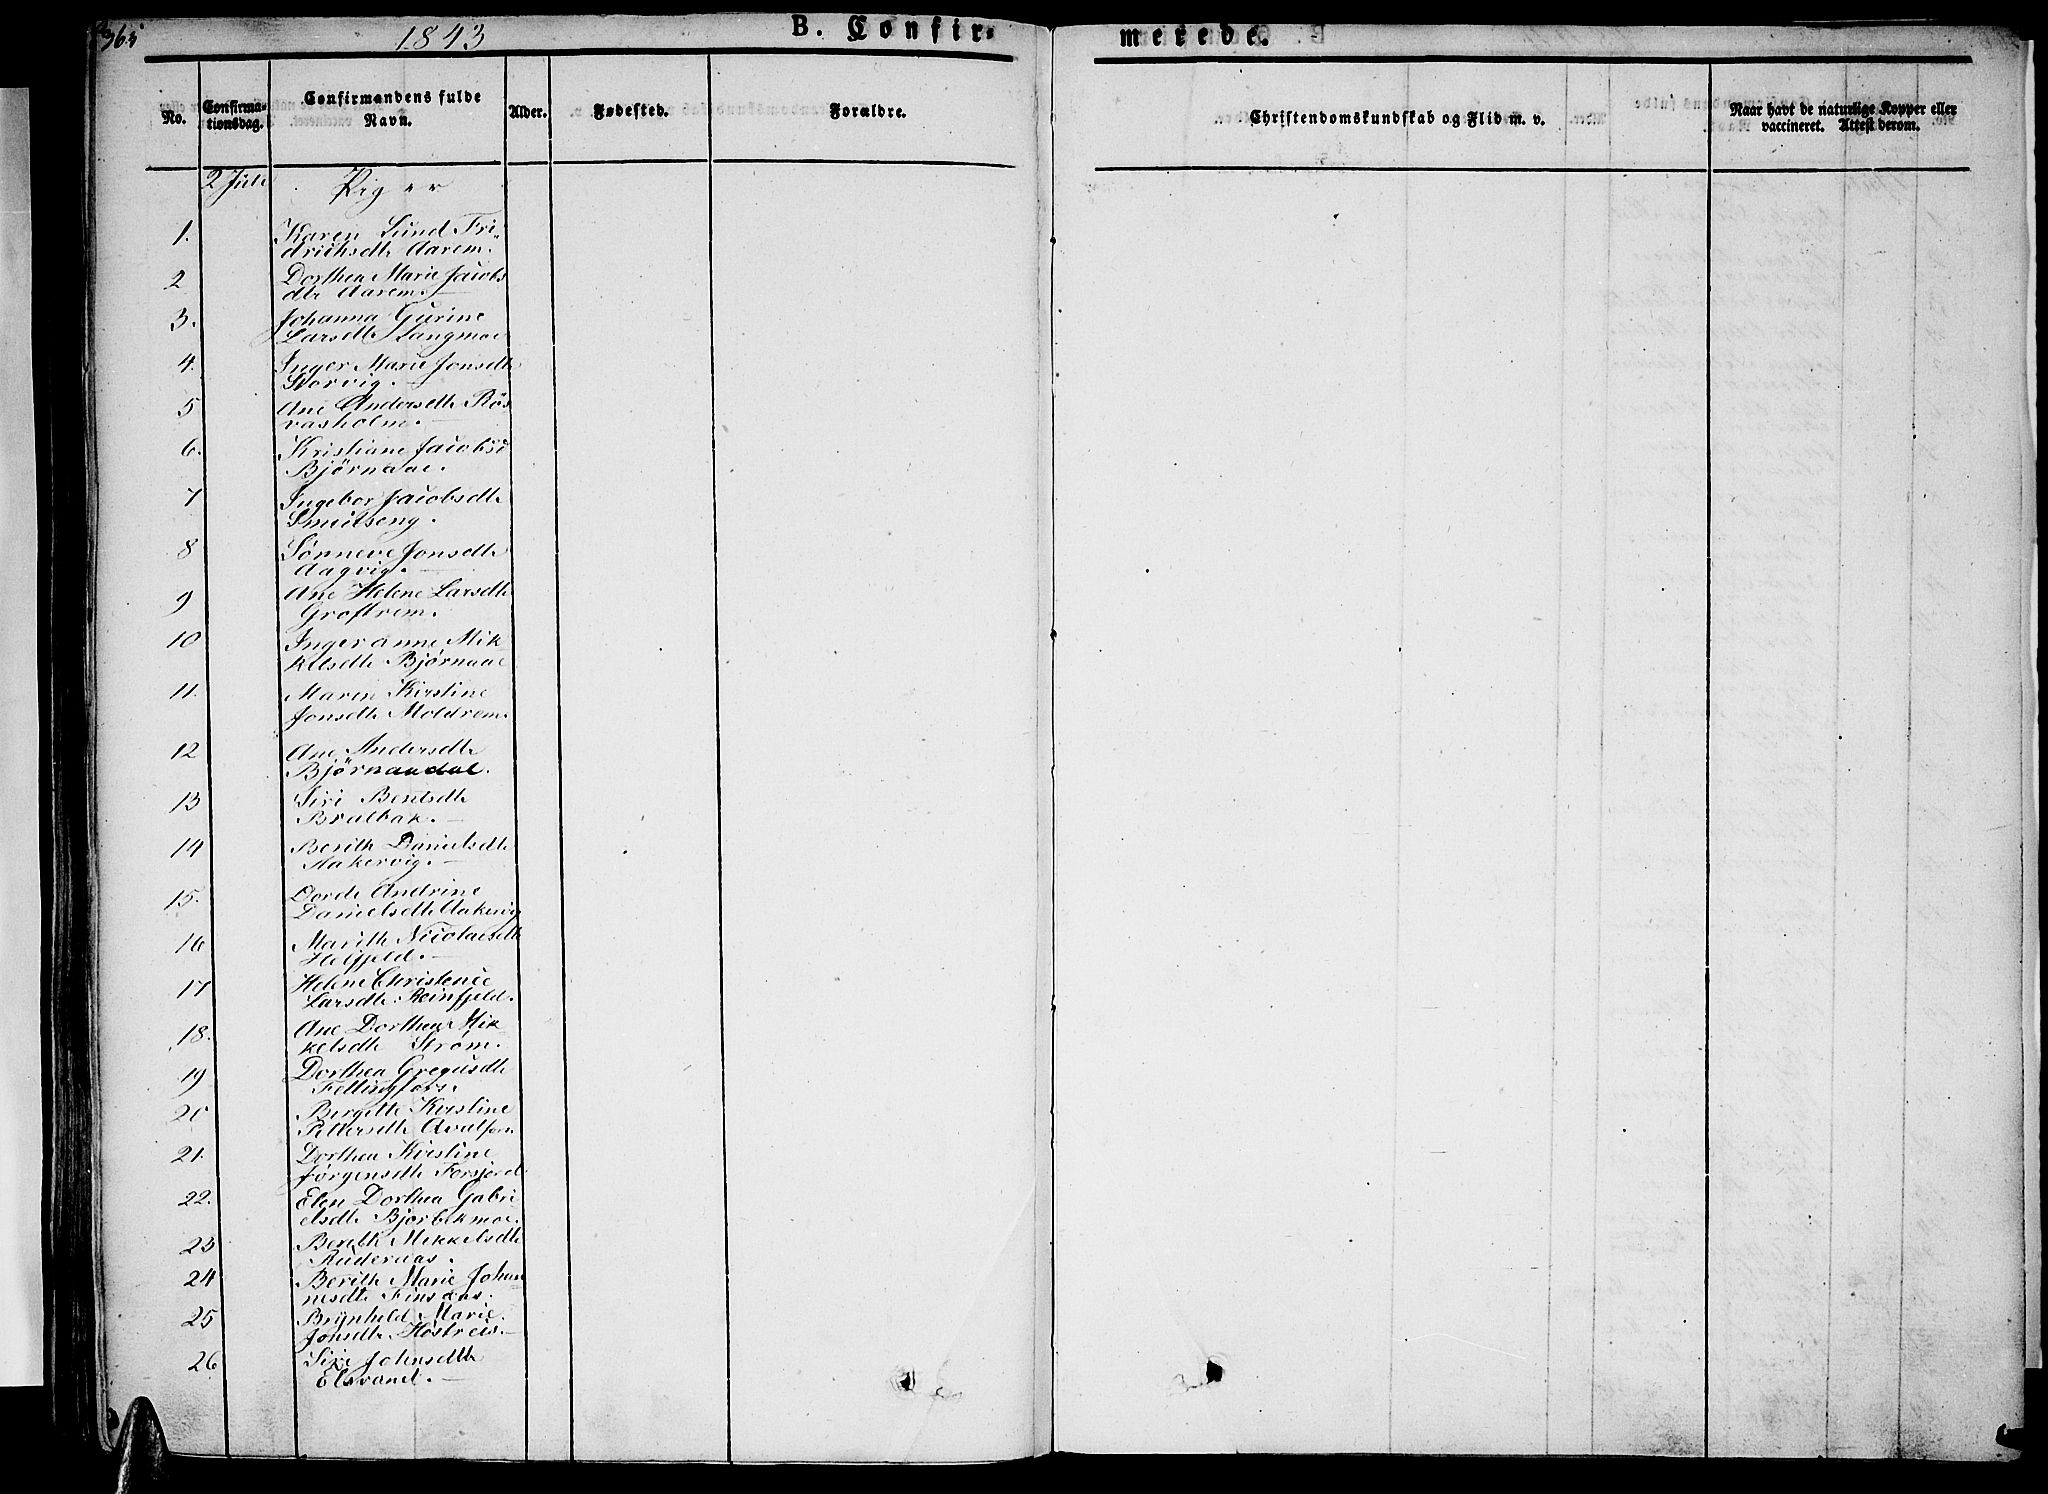 365
1843
B. Confir-
merede.
No.
Confirma-
tionsdag.
Confirmandens fulde
Navn.
Alder.
Fødested.
Forældre.
Christendomskundskab og Flid m. v.
Naar havt de naturlige Kopper eller
vaccineret. Attest derom.
2 Juli Piger
1. Karen Lund Fri
driksdtr Aarem.
2 Dorthea Marie Jacobs
dtr Aarem.
3. Johanna Gurine
Larsdtr Langmoe
4. Inger Marie Jonsdtr
Storvig.
5 Ane Andersdtr Røs
vasholm.
6. Kristiane Jacobsd
Bjørnaae.
7 Ingebor Jacobsdtr
Smultseng.
8 Sønneve Jonsdtr
Aagvig.
9 Ane Helene Larsdtr
Groftrem.
10 Inger anne Mik
kelsdtr Bjørnaae
11. Maren Kirstine
Jonsdtr Moldrem.
12 Ane Andersdtr
Bjørnaadal.
13 Siri Bentsdtr
Bratbak.
14 Berith Danielsdtr
Aakervig.
15. Dorde Andrine
Danielsdtr Aakervig
16 Marith Nicolaisdtr
Helfjeld.
17 Helene Christence
Larsdtr Reinfjeld.
18. Ane Dorthea Mik
kelsdtr Strøm.
19 Dorthea Gregusdtr
Fellingfors.
20 Bergitte Kirstine
Pettersdtr
21. Dorthea Kirstine
Jørgensdtr Forsjord
22. Elen Dorthea Gabri
elsdtr Bjørbekmoe.
23 Berith Mikkelsdtr
24 Berith Marie Johan
nesdtr Finsaas.
25 Brynhild Marie
Jonsdtr
26 Siri Johnsdtr
Elsvand.